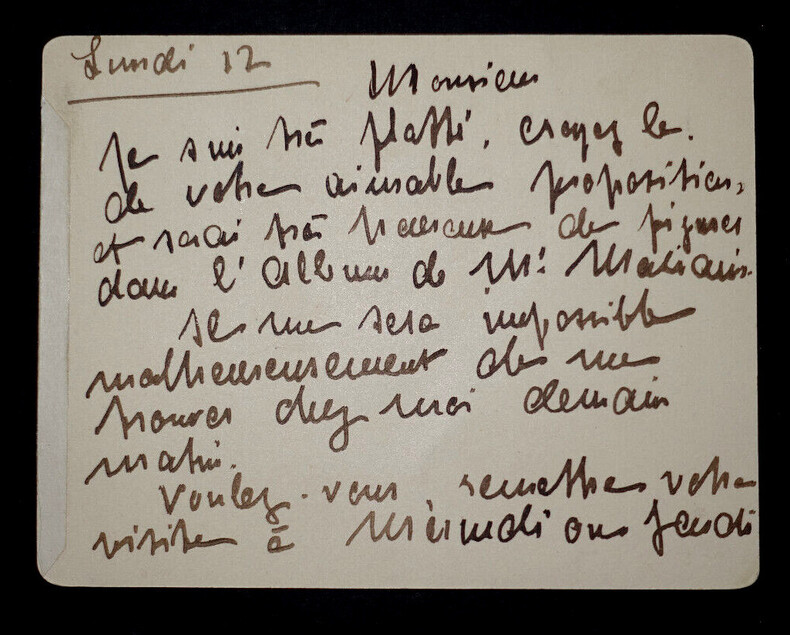 Lundi 12
Monsieur
Je suis très flatté, croyez le.
de votre aimable proposition,
et serai très heureux de figurer
dans l'album de Mr. Mariani.
Il me sera impossible
malheureusement de me
trouver chez moi demain
matin.
Voulez-vous remettre votre
visite à Mercredi ou Jeudi